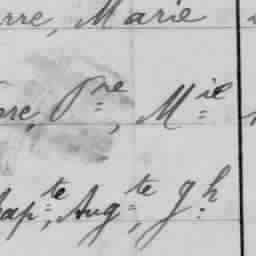 rre, Marie
re, Pre, Mie
Bapte, Augte, Jh